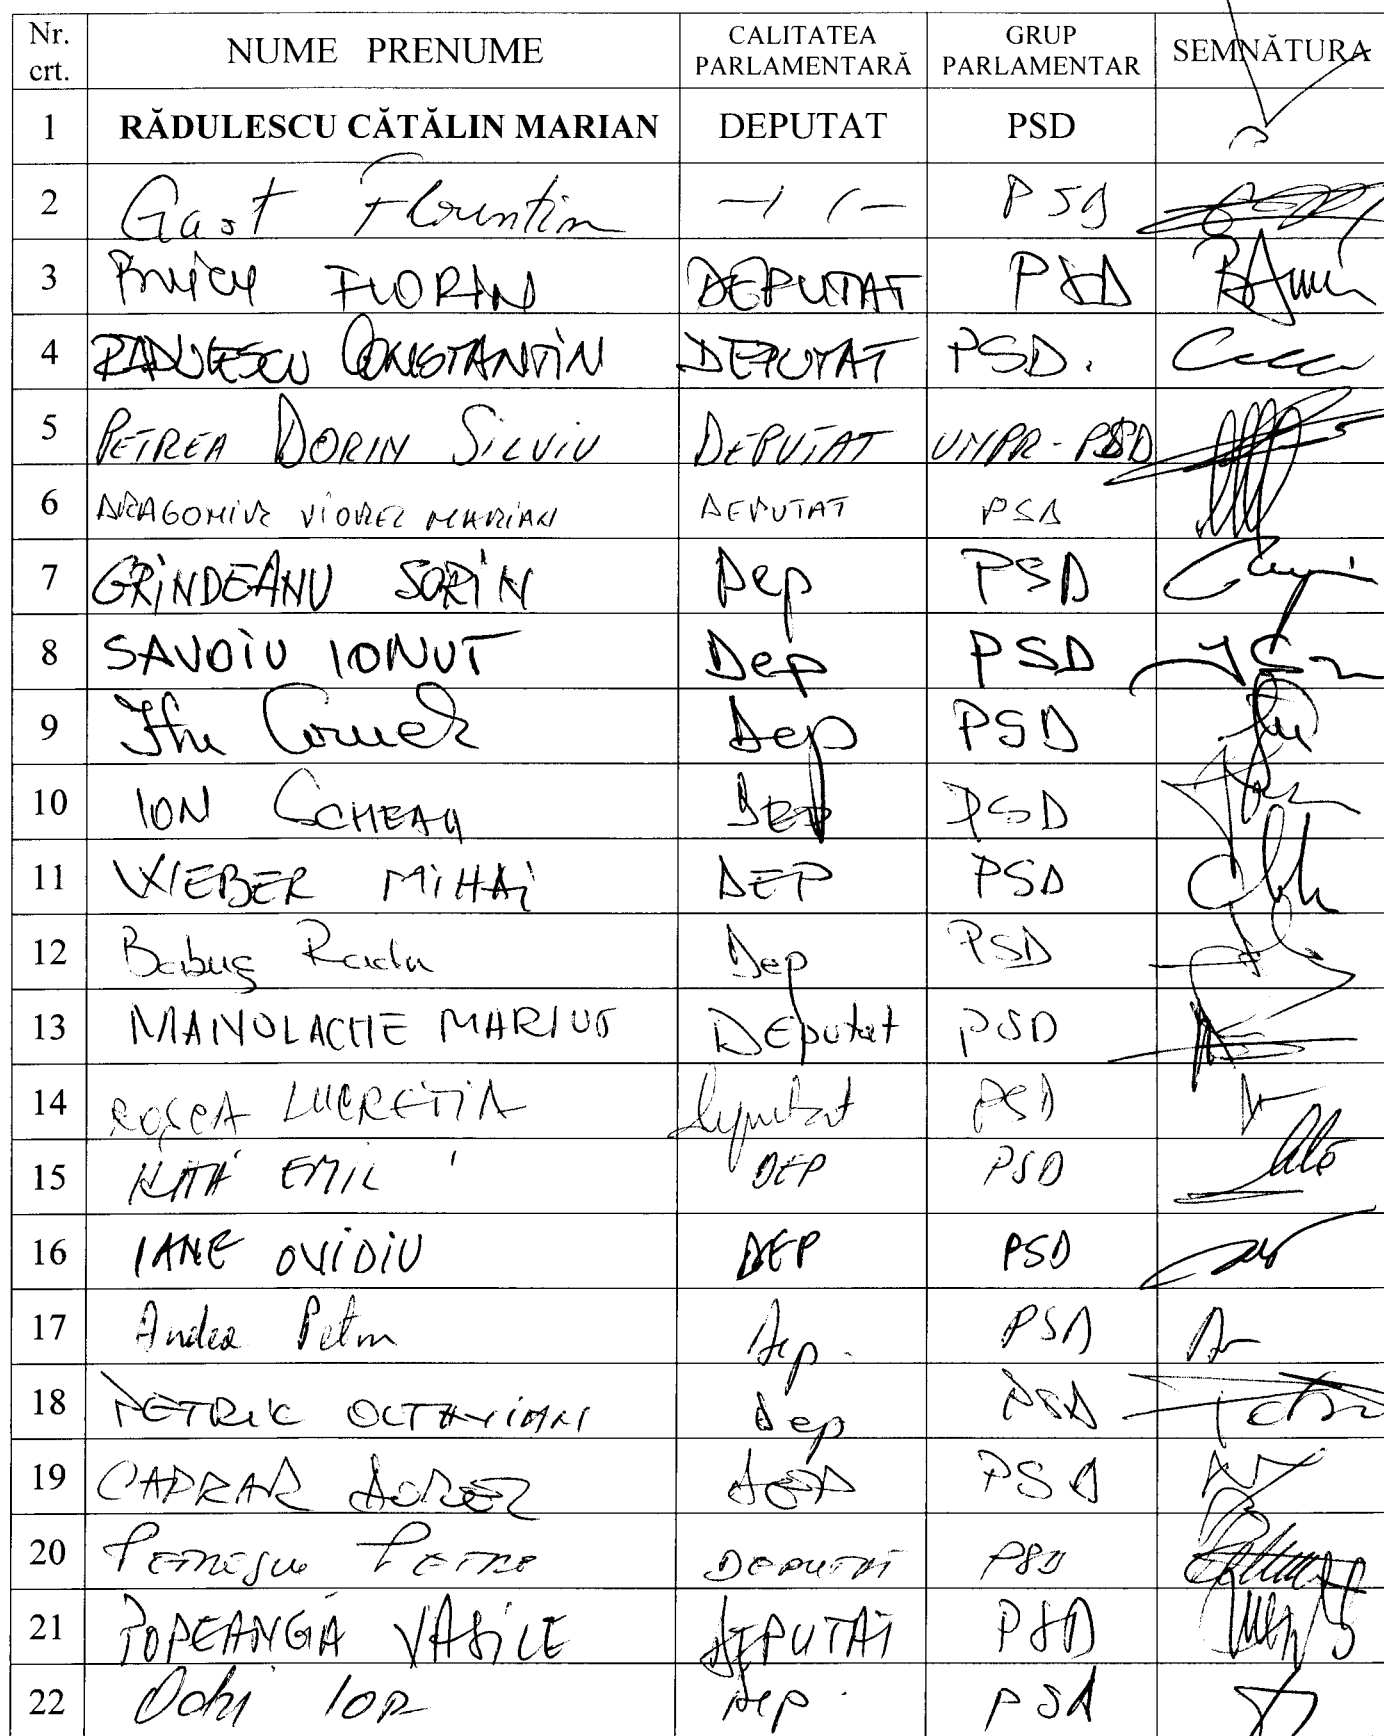 Nr. crt. NUME PRENUME CALITATEA PARLAMENTARĂ GRUP PARLAMENTAR SEMNĂTURA
1 RĂDULESCU CĂTĂLIN MARIAN DEPUTAT PSD
2 Gust Florentin —/ /— PSD
3 FLORIN DEPUTAT PSD
4 RADULESCU CONSTANTIN DEPUTAT PSD.
5 PETREA DORIN SILVIU DEPUTAT UNPR - PSD
6 DRAGOMIR VIOREL MARIAN DEPUTAT PSD
7 GRINDEANU SORIN Dep PSD
8 SAVOIU IONUT Dep PSD
9 Dep PSD
10 ION DEP PSD
11 WEBER MIHAI DEP PSD
12 Babuș Radu Dep PSD
13 MANOLACHE MARIUS DEputat PSD
14 ROȘCA LUCREȚIA deputat PSD
15 NIȚĂ EMIL DEP PSD
16 IANE OVIDIU DEP PSD
17 Andea Petru Dep. PSD
18 PETRIC OCTAVIAN Dep PSD
19 CAPRAR DOREL DEP PSD
20 PETRESCU PETRE DEPUTAT PSD
21 POPEANGĂ VASILE DEPUTAT PSD
22 Ochi ION Dep. PSD